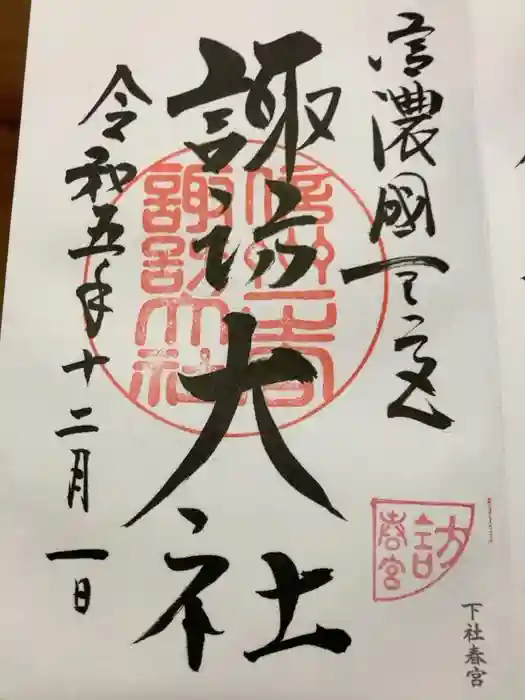 信濃國一之宮
諏訪大社
令和五年十二月一日
信州一之宮
諏訪大社
諏訪
春宮
下社春宮